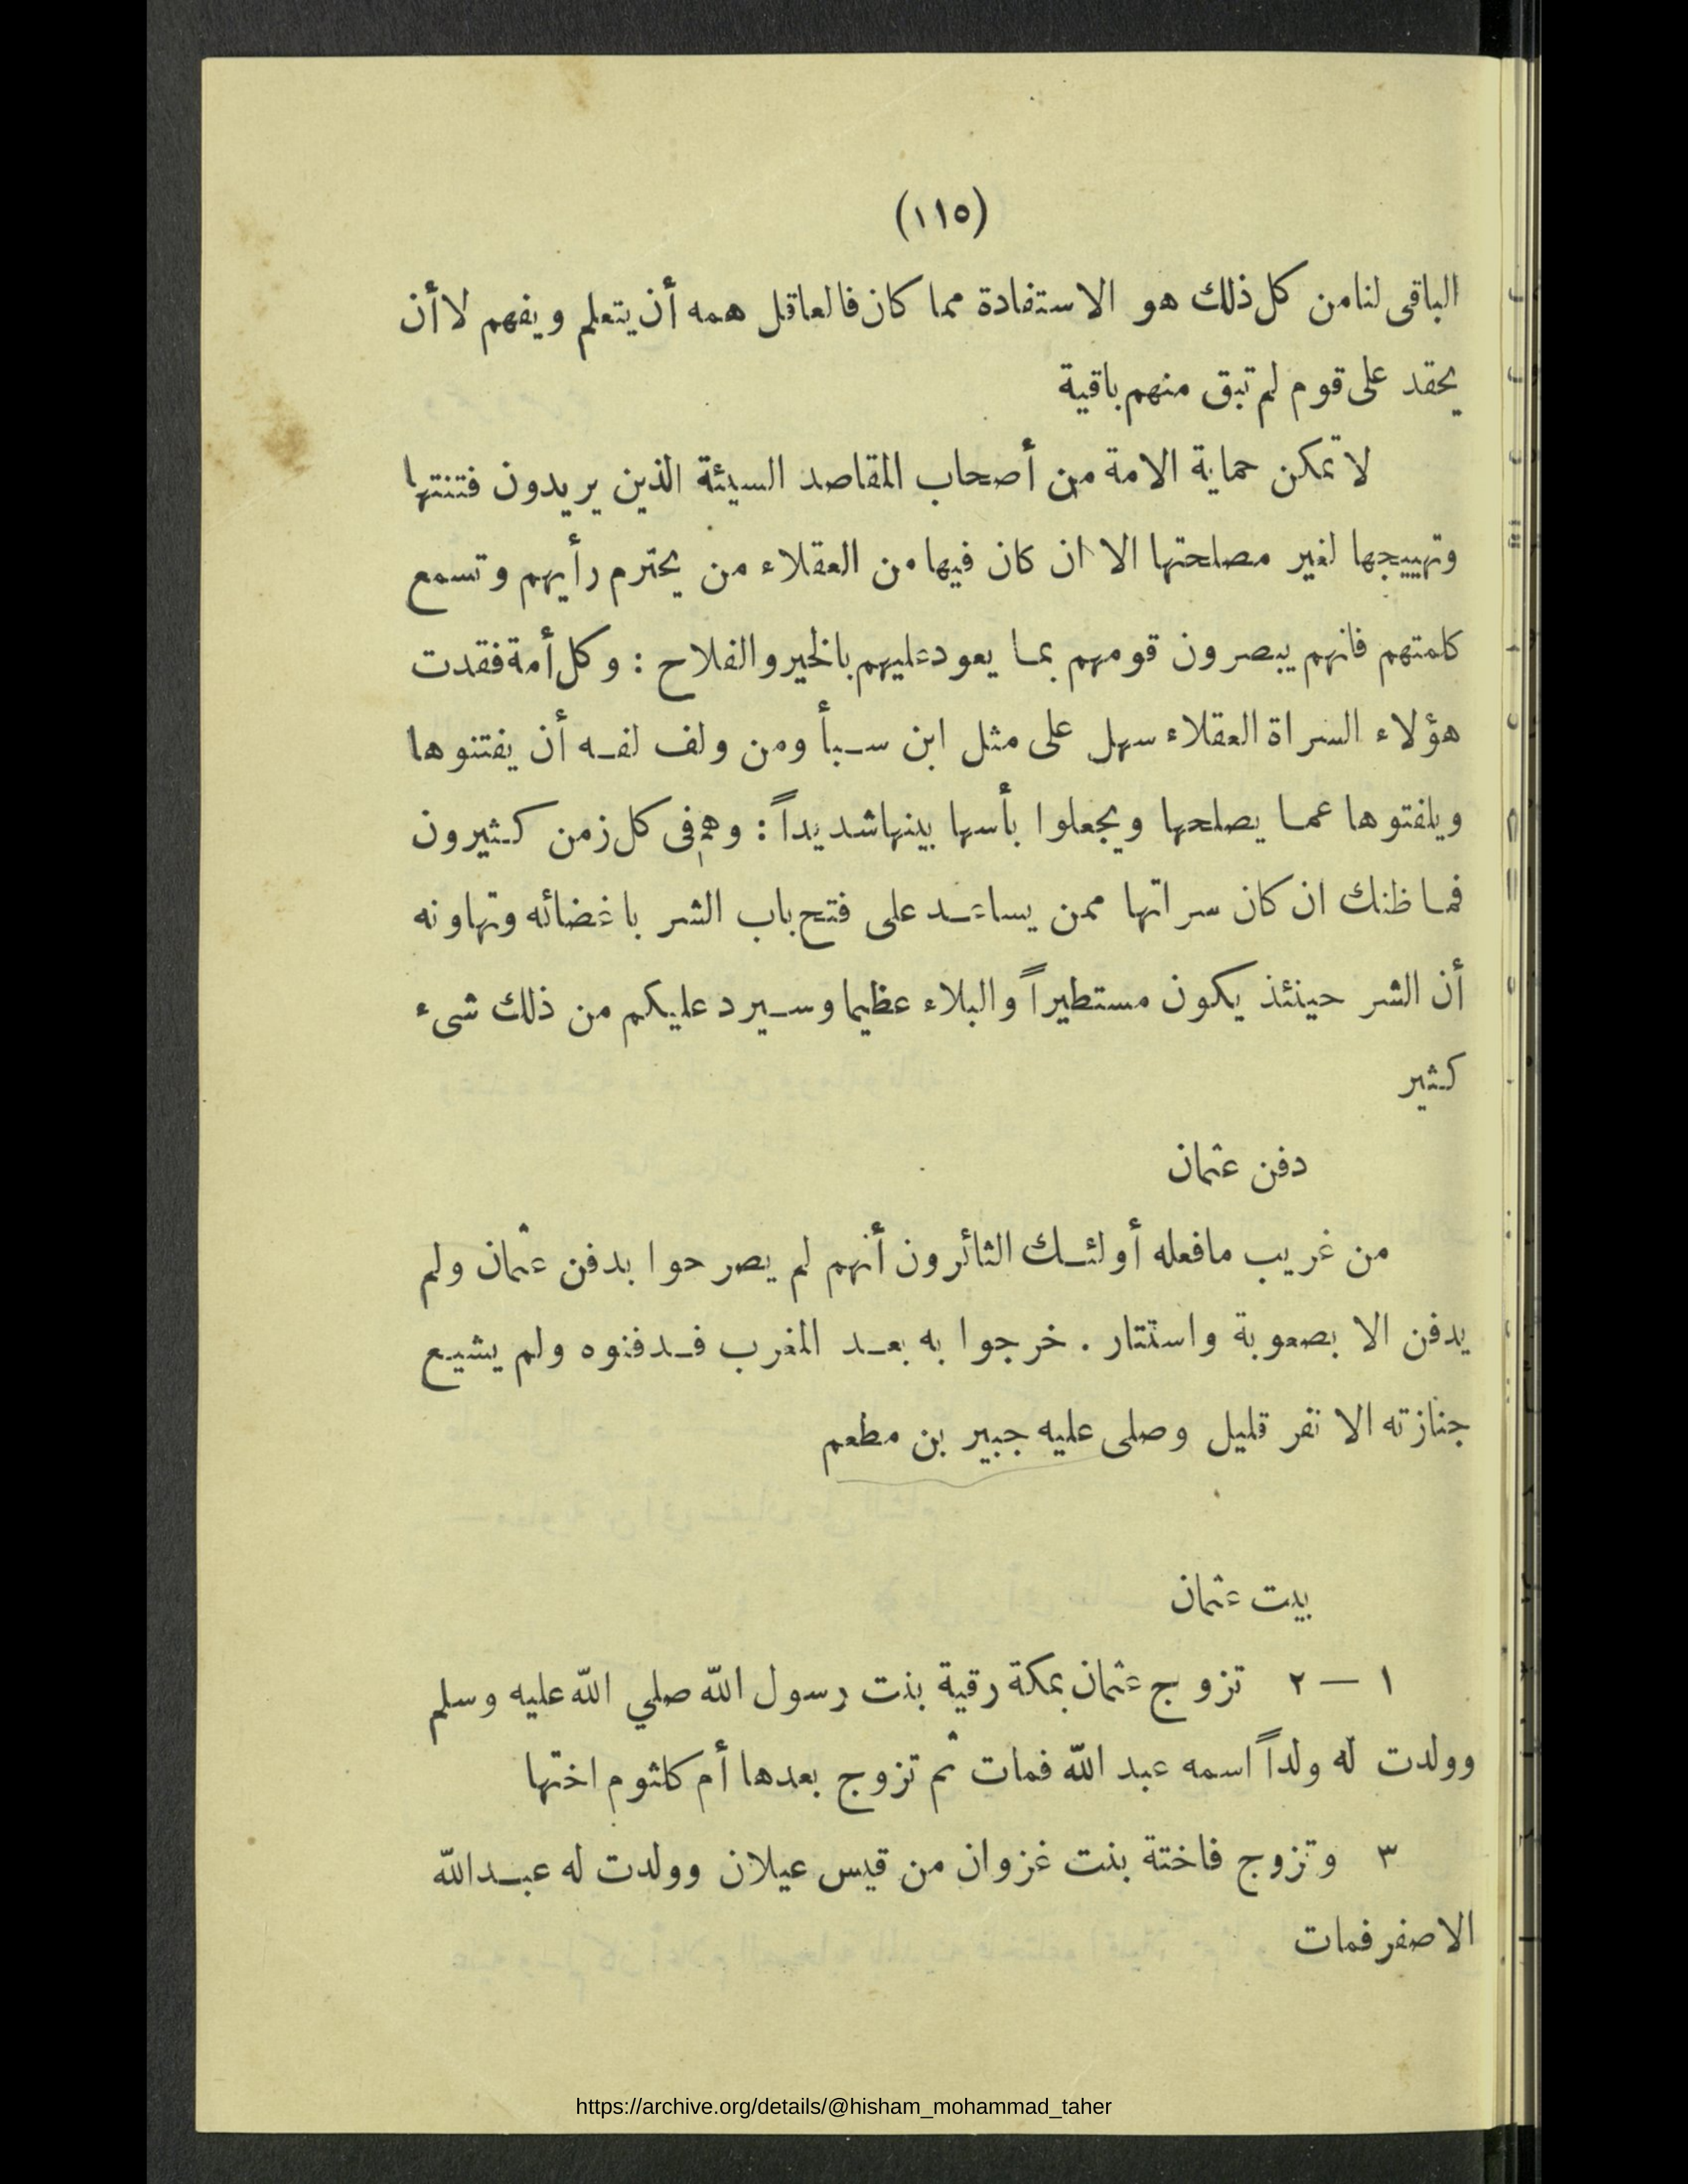 (١١٥)
الباقى لنا من كل ذلك هو الاستفادة مما كان فالعاقل همه أن يتعلم ويفهم لا أن
يحقد على قوم لم تبق منهم باقية
لا تمكن حماية الامة من أصحاب المقاصد السيئة الذين يريدون فتنتها
وتهييجها لغير مصلحتها الا ان كان فيها من العقلاء من يحترم رأيهم وتسمع
كلمتهم فانهم يبصرون قومهم بما يعود عليهم بالخير والفلاح : وكل أمة فقدت
هؤلاء السراة العقلاء سهل على مثل ابن سبأ ومن ولف لفه أن يفتنوها
ويلفتوها عما يصلحها ويجعلوا بأسها بينها شديداً : وهم فى كل زمن كثيرون
فما ظنك ان كان سراتها ممن يساعد على فتح باب الشر باغضائه وتهاونه
أن الشر حينئذ يكون مستطيراً والبلاء عظيما وسيرد عليكم من ذلك شىء
كثير
دفن عثمان
من غريب مافعله أولئك الثائرون أنهم لم يصرحوا بدفن عثمان ولم
يدفن الا بصعوبة واستتار . خرجوا به بعد المغرب فدفنوه ولم يشيع
جنازته الا نفر قليل وصلى عليه جبير بن مطعم
بيت عثمان
١ — ٢ تزوج عثمان بمكة رقية بنت رسول الله صلي الله عليه وسلم
وولدت له ولداً اسمه عبد الله فمات ثم تزوج بعدها أم كلثوم اختها
٣ وتزوج فاختة بنت غزوان من قيس عيلان وولدت له عبد الله
الاصفر فمات
https://archive.org/details/@hisham_mohammad_taher